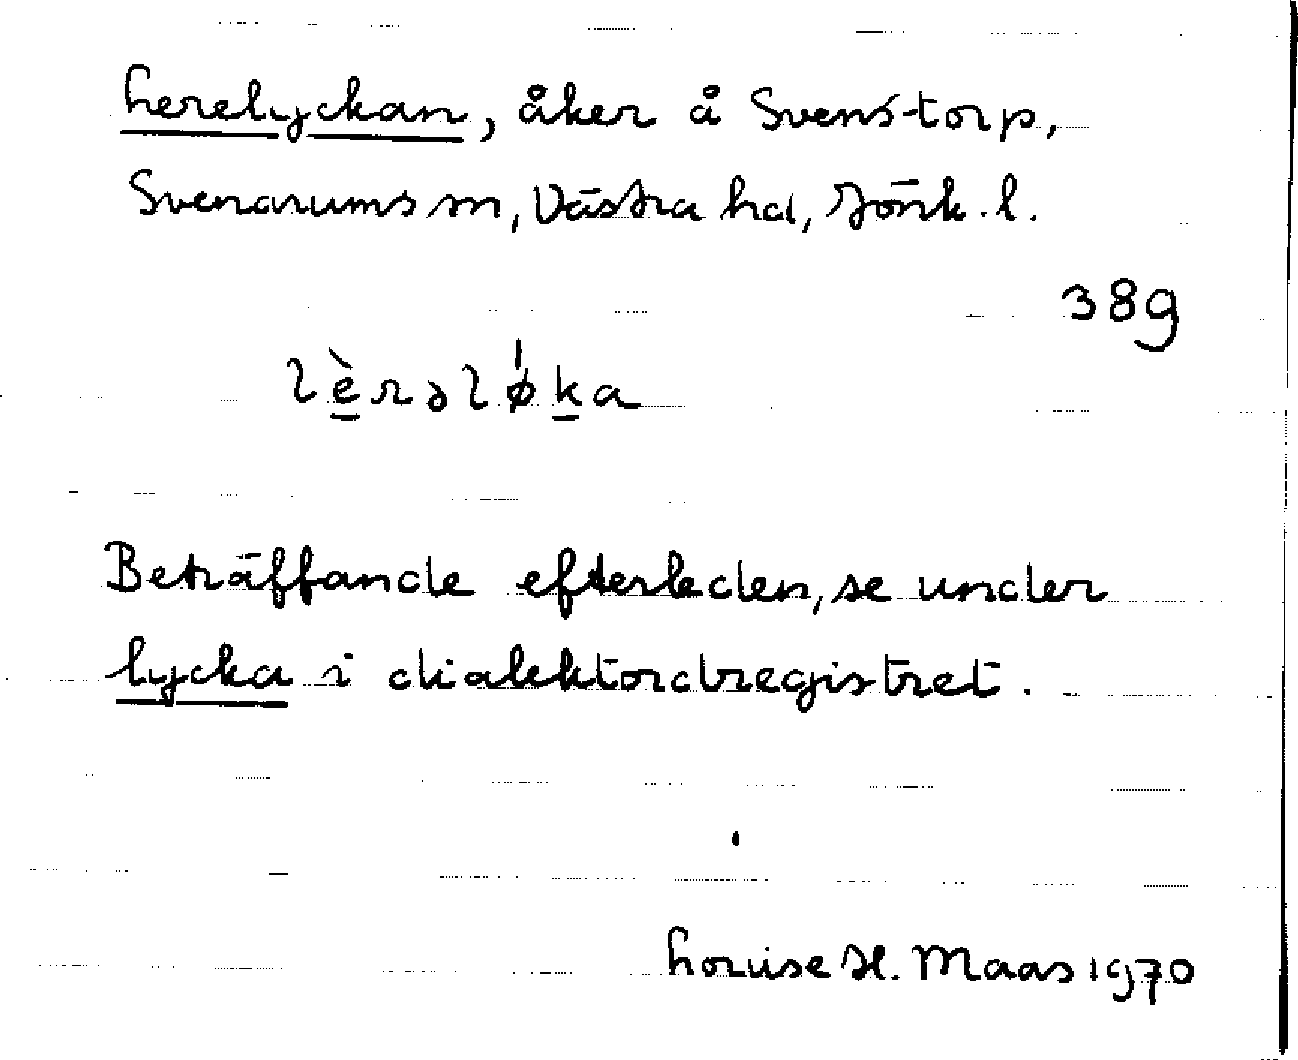 Lerelyckan, åker å Svenstorp,
Svenarums sn, Västra hd, Jönk. l.
389
lèrəlǿka
Beträffande efterleden, se under
lycka i dialektordregistret.
Louise H. Maas 1970